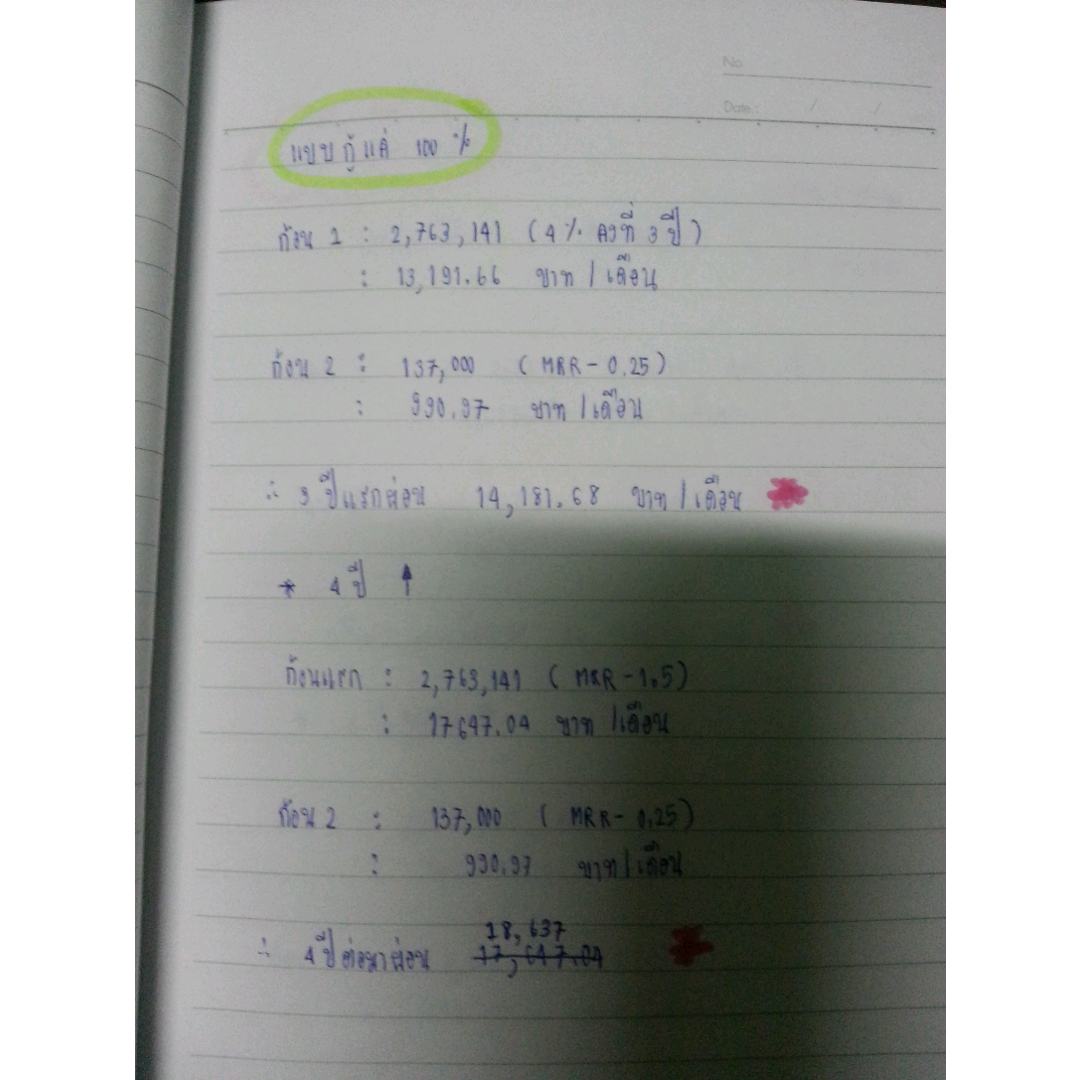 No
Date : / /
แบบกู้แค่ 100 %
ก้อน 1 : 2,763,141 (4% คงที่ 3 ปี)
: 13,191.66 บาท / เดือน
ก้อน 2 : 137,000 (MRR - 0.25)
: 990.97 บาท / เดือน
∴ 3 ปีแรกผ่อน 14,181.68 บาท / เดือน
* 4 ปี ↑
ก้อนแรก : 2,763,141 (MRR - 1.5)
: 17647.04 บาท / เดือน
ก้อน 2 : 137,000 (MRR - 0.25)
: 990.97 บาท / เดือน
18,637
∴ 4 ปีต่อมาผ่อน 17,647.04